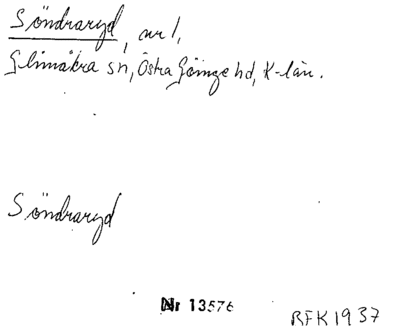 Söndraryd, nr 1,
Glimåkra sn, Östra Göinge hd, K-län.
Söndraryd
Nr 13576
RFK 1937